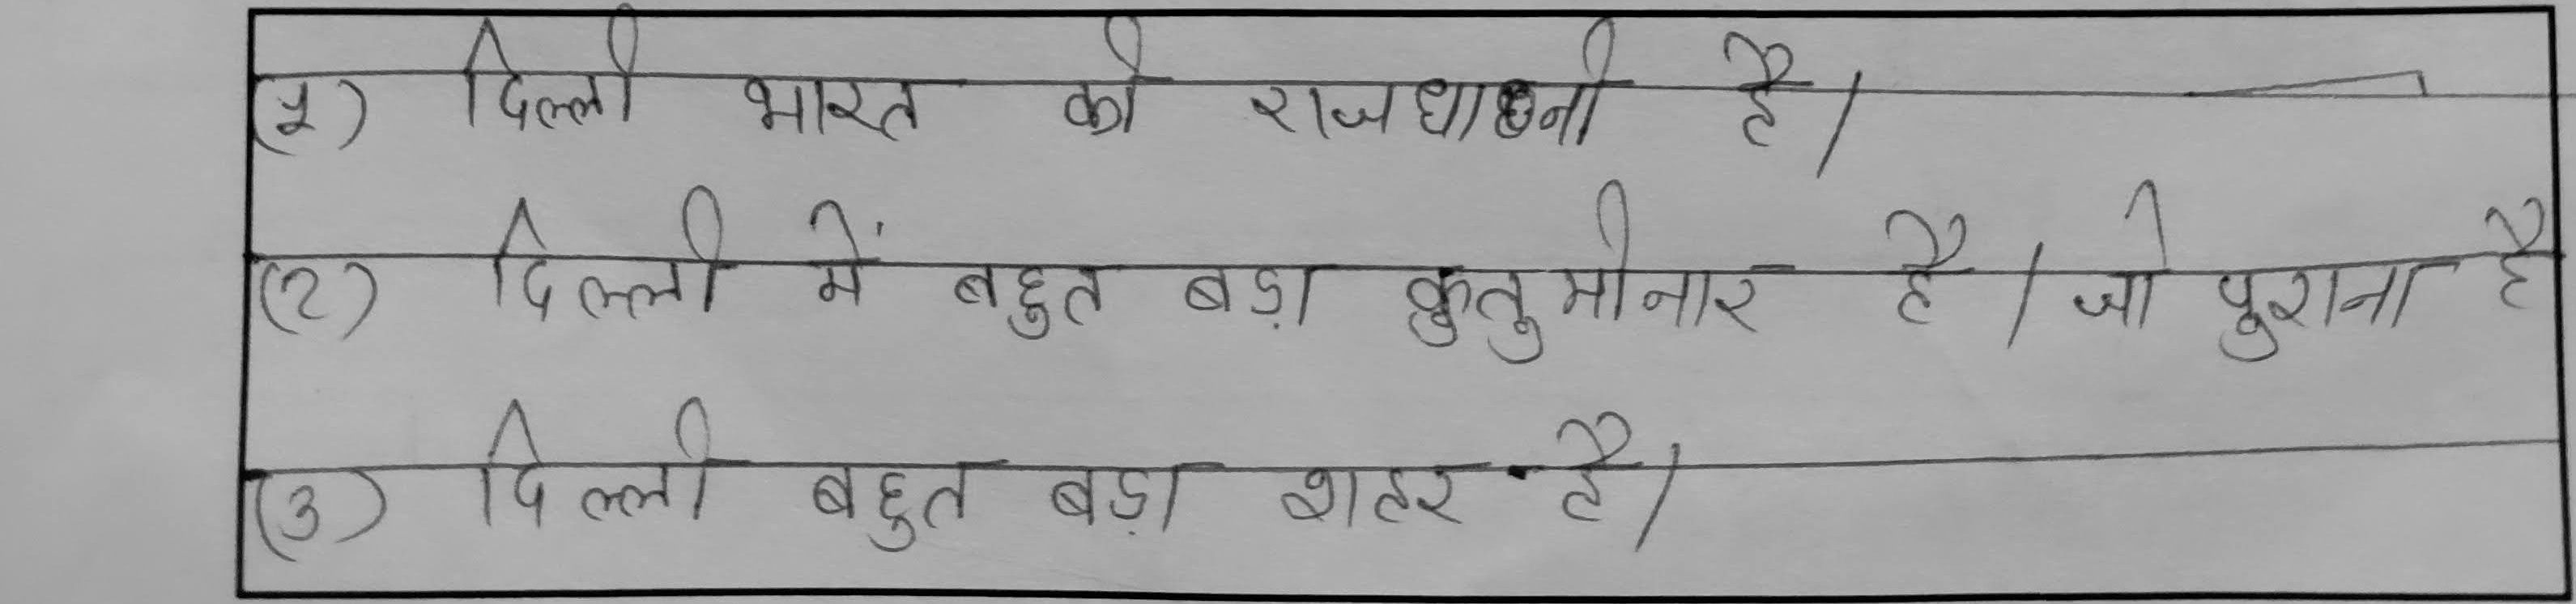 (१) दिल्ली भारत की राजधानी है।
(२) दिल्ली में बहुत बड़ा कुतुमीनार है। जो पुराना है
(३) दिल्ली बहुत बड़ा शहर है।